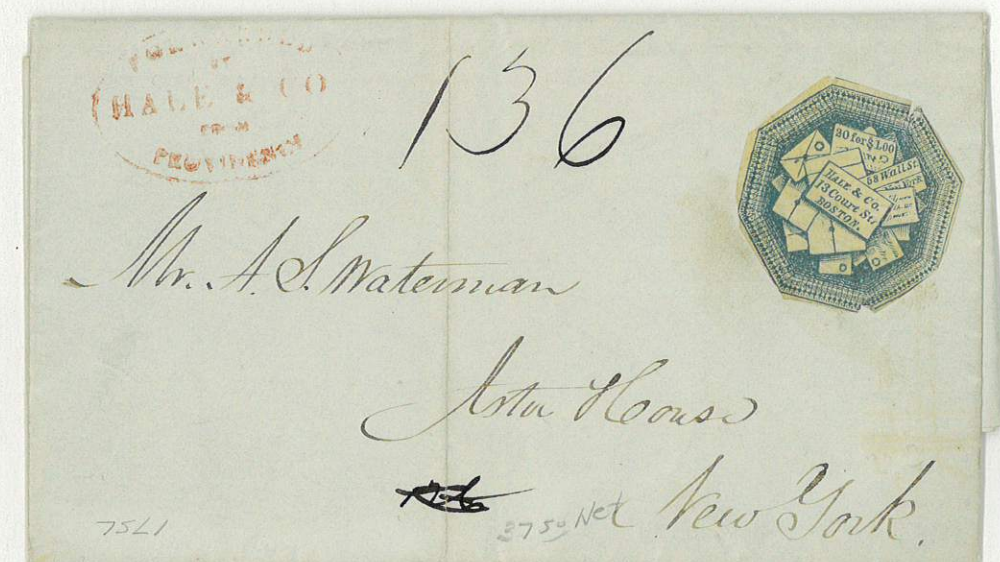 FORWARDED
BY
HALE & CO
FROM
PROVIDENCE
136
20 for $1.00
58 Wall St.
York
HALE & Co.
13 Court St.
BOSTON.
Mr. A. S. Waterman
Astor House
New York.
75L1
37 50 Net